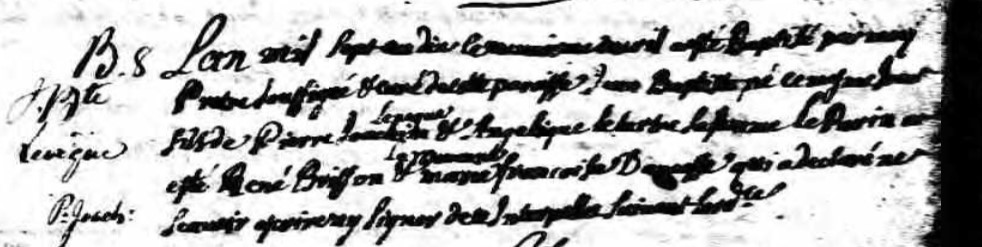 B. 8 Lan mil Sept cen dix le neuvieme avril a esté Baptisé par moy
J. Bte Prêtre Soussigné Curé de cette paroisse Jean Baptiste né ce mesme Jour
Levêque fils de Pierre Joachim Levêque & Angelique Letartre Sa femme Le Parin a
esté René Brisson & La marraine marie francoise Dauosse qui a declaré ne
P. Joach: Scavoir ecrire ny Signer de ce Interpellée Suivant Lord.ce